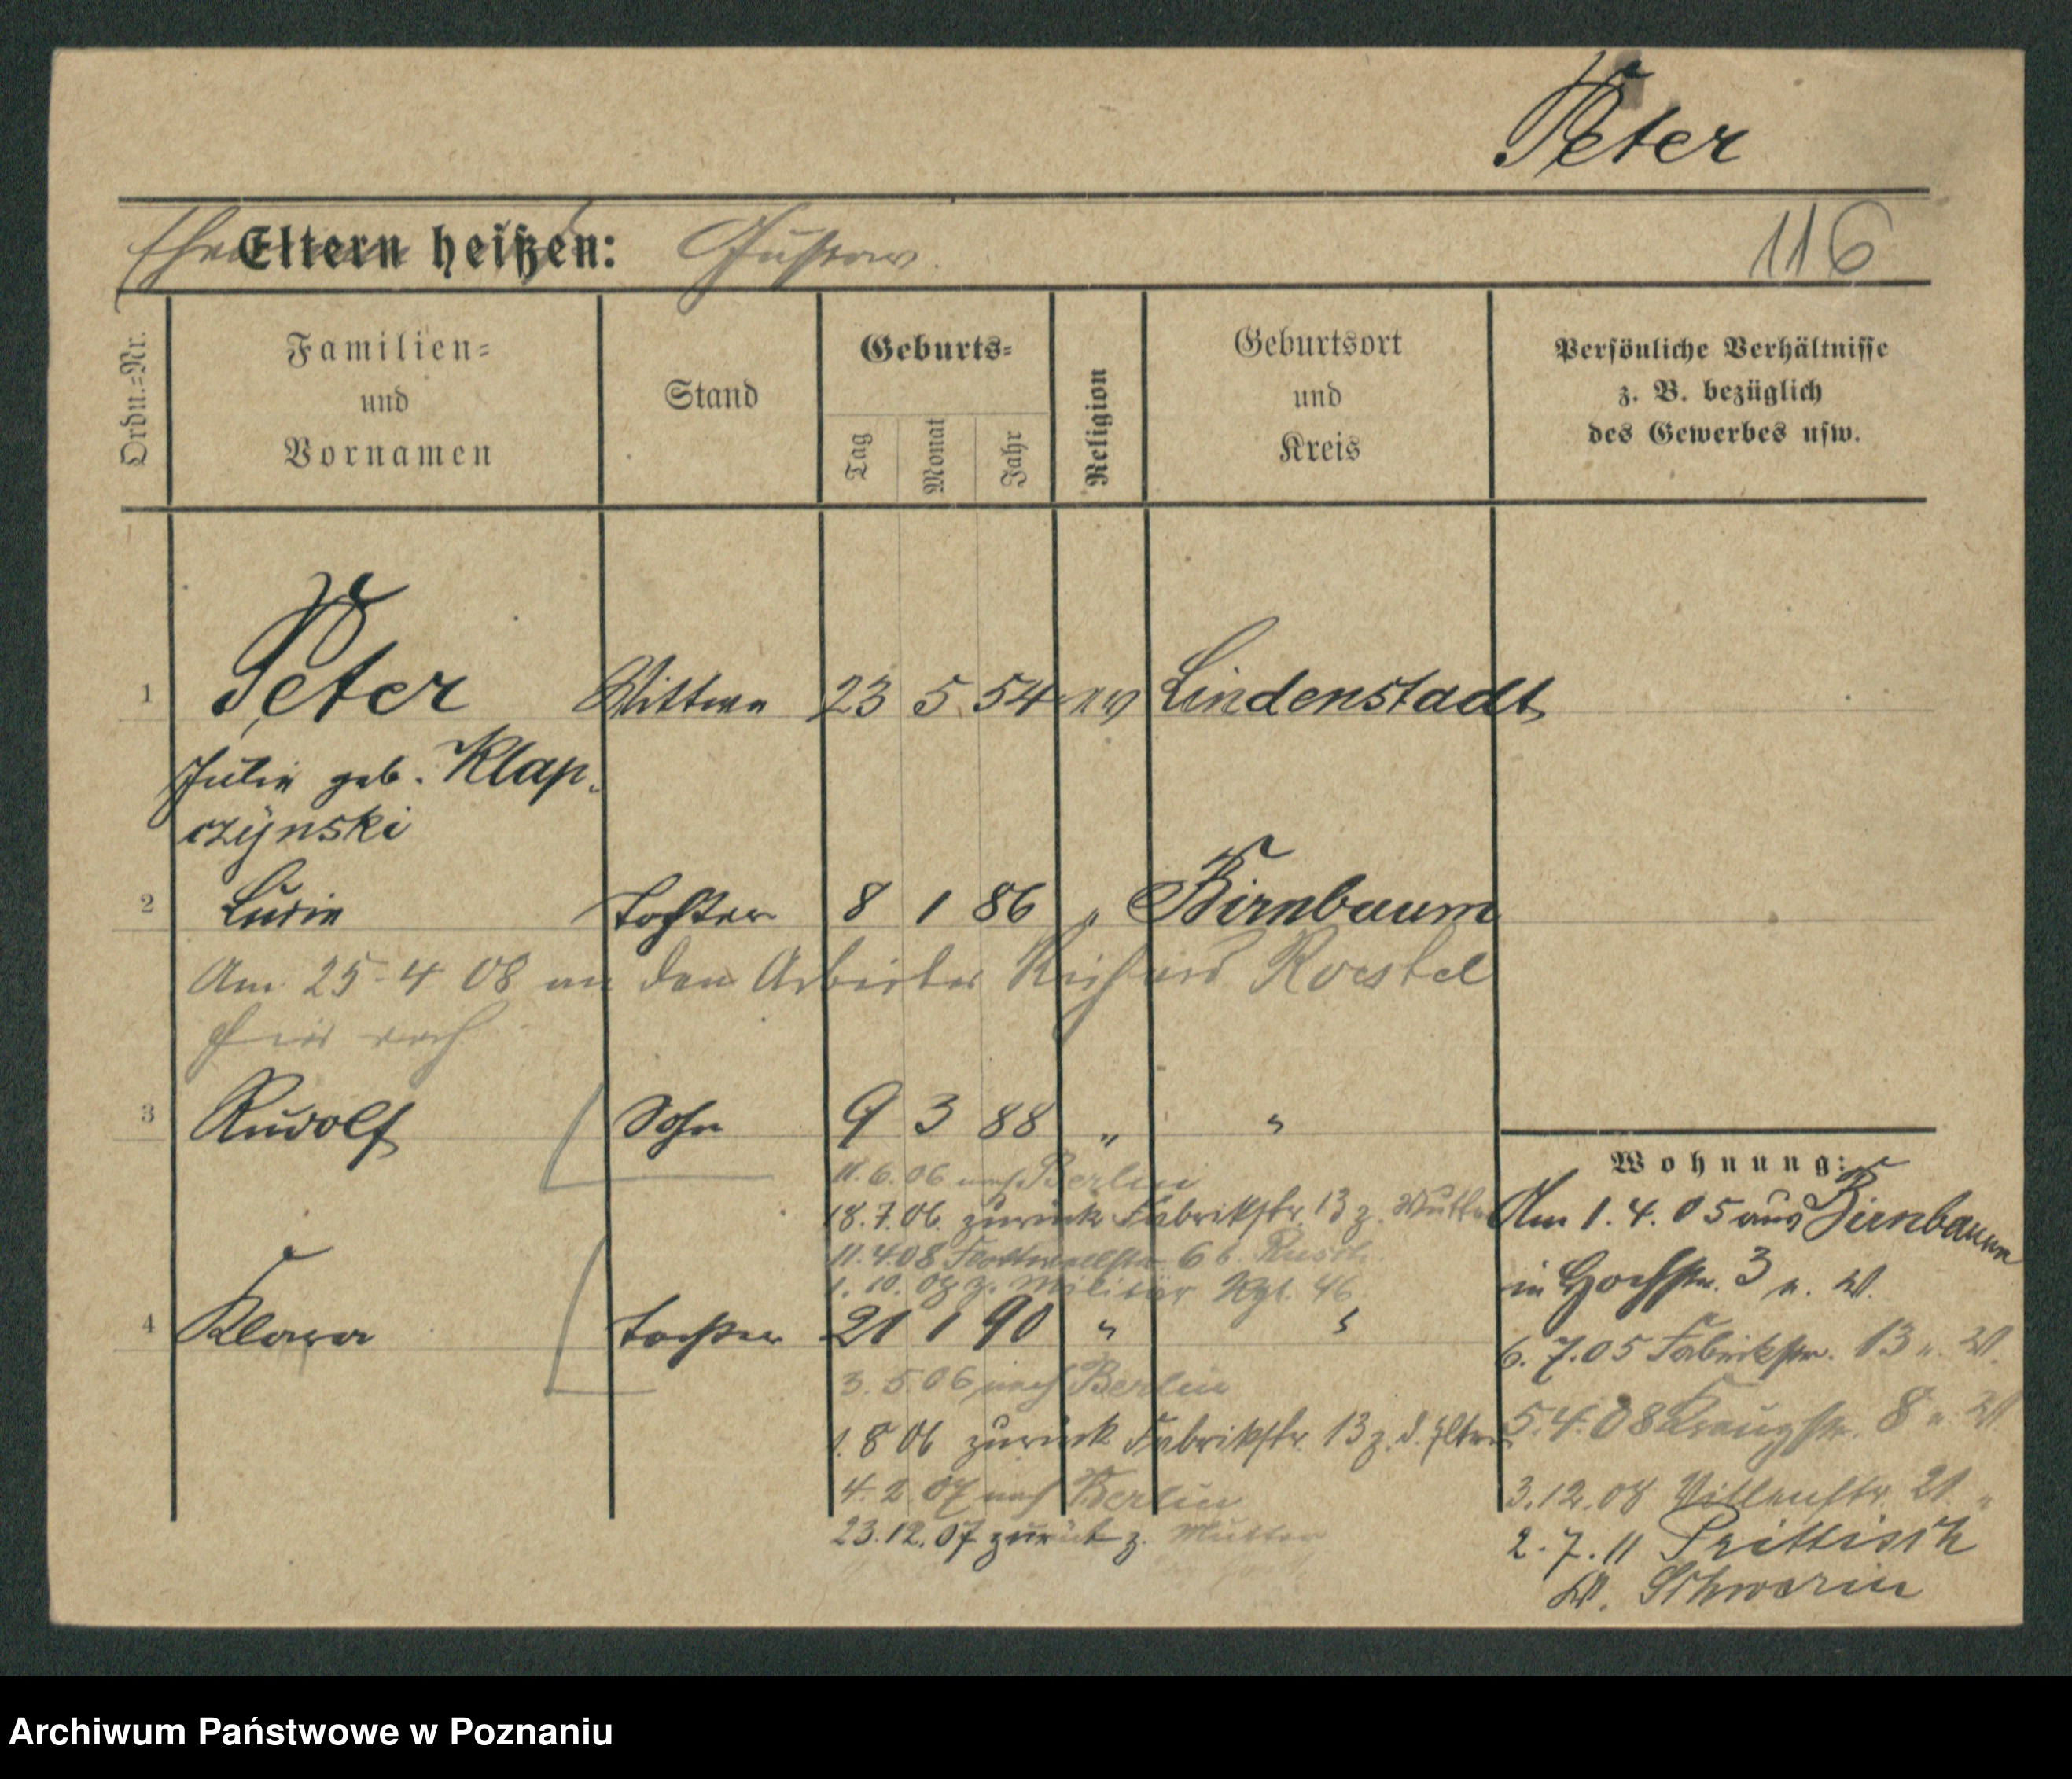 Peter
Eltern heißen: Gustav.
116
Ordn.=Nr.
Familien=
und
Vornamen
Stand
Geburts=
Tag
Monat
Jahr
Religion
Geburtsort
und
Kreis
Persönliche Verhältnisse
z. B. bezüglich
des Gewerbes usw.
1 Peter Wittwe 23 5 54 ev Lindenstadt
Julie geb. Klap-
czynski
2 Luise Tochter 8 1 86 " Birnbaum
Am 25.4 08 an den Arbeiter Richard Roestel
3 Rudolf Sohn 9 3 88 " "
11.6.06 nach Berlin
18.7.06. zurück Fabrikstr. 13 z. Mutter
11.4.08 6
1. 10. z. Militär Rgt. 46.
4 Klara Tochter 21 1 90 " "
3. 5 06 nach Berlin
1. 8 06 zurück Fabrikstr. 13 z. d. Eltern
4. 2. 07 nach Berlin
23.12.07 zurück z. Mutter
Wohnung:
Am 1. 4. 05 aus Birnbaum
in Hochstr. 3 u. W.
6. 7. 05 Fabrikstr. 13 u. W.
5. 4. 08 Kreuzstr. 8 u. W
3. 12. 08 21. "
2. 7. 11 Prittisch
Kr. Schwerin
Archiwum Państwowe w Poznaniu